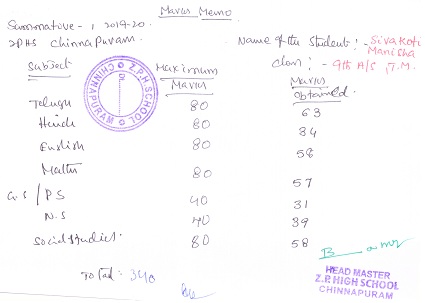 Marks Memo
Summative - 1, 2019-20.
ZPHS Chinnapuram.
Name of the Student :- Sivakoti Manisha
class :- 9th A/S, T.M.
Subject Maximum Marks Marks obtained.
Telugu 80 63
Hindi 80 34
English 80 58
Maths 80 57
G.S / P.S 40 31
N.S 40 39
Social Studies. 80 58
Total : 340
Z.P.H SCHOOL
CHINNAPURAM
HEAD MASTER
Z.P. HIGH SCHOOL
CHINNAPURAM